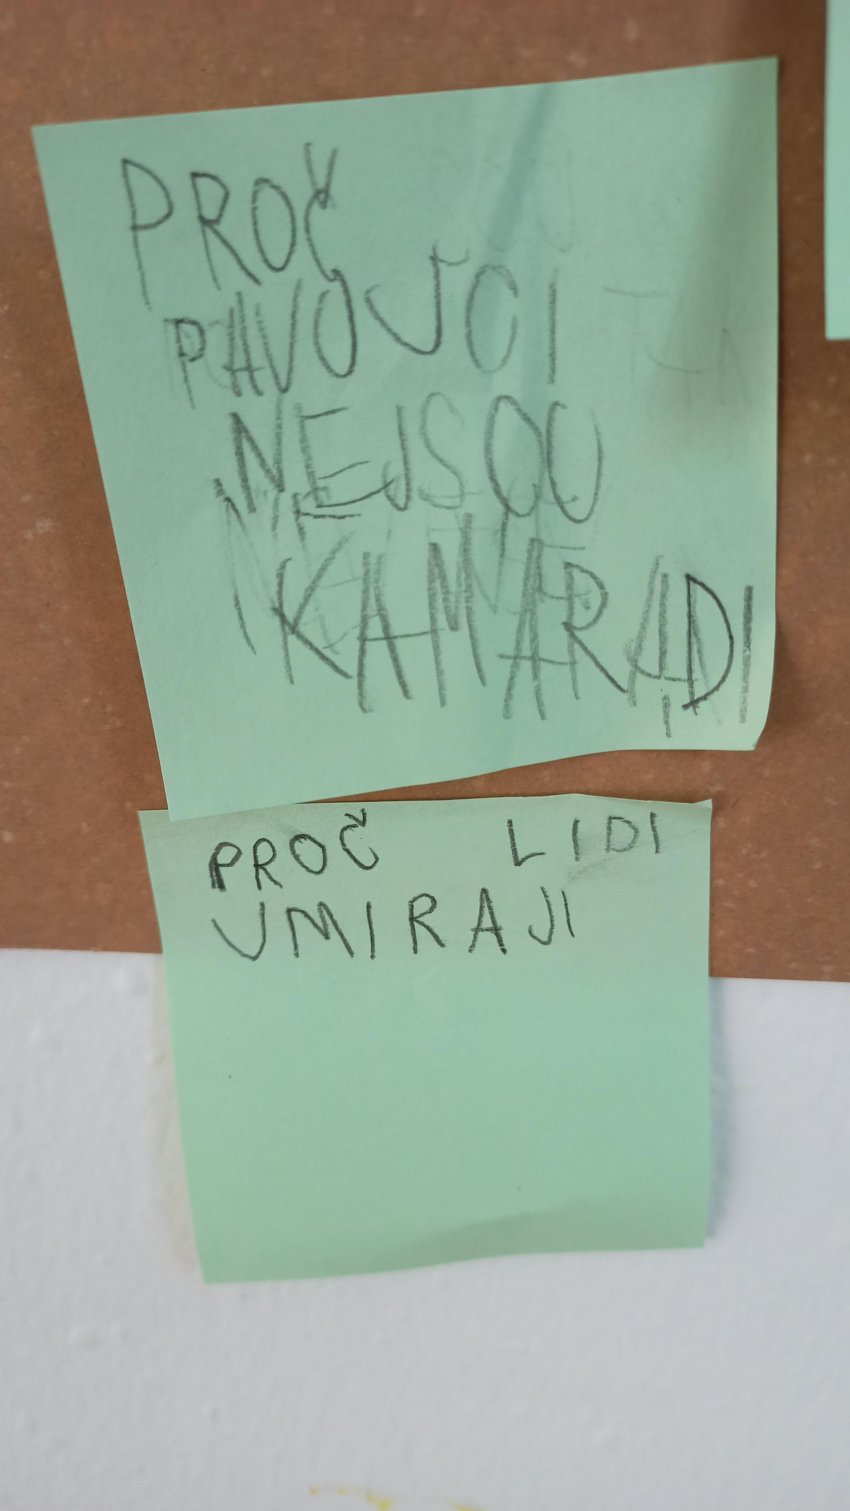 PROČ
PAVOJCI
NEJSOU
KAMARADI
PROČ LIDI
UMIRAJI